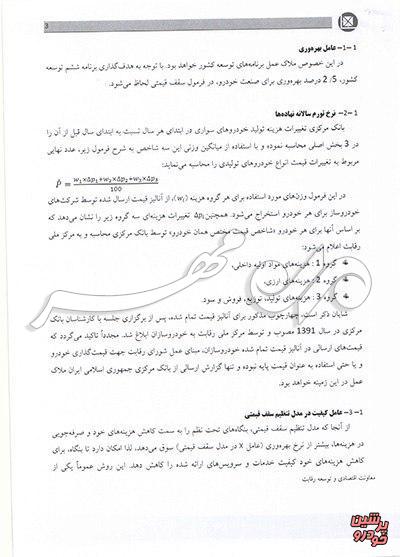 3
1-1- عامل بهره‌وری
در این خصوص ملاک عمل برنامه‌های توسعه کشور خواهد بود. با توجه به هدف‌گذاری برنامه ششم توسعه
کشور، 2/5 درصد بهره‌وری برای صنعت خودرو، در فرمول سقف قیمتی لحاظ می‌شود.
1-2- نرخ تورم سالانه نهاده‌ها
بانک مرکزی تغییرات هزینه تولید خودروهای سواری در ابتدای هر سال نسبت به ابتدای سال قبل از آن را
در 3 بخش اصلی محاسبه نموده و با استفاده از میانگین وزنی این سه شاخص به شرح فرمول زیر، عدد نهایی
مربوط به تغییرات قیمت انواع خودروهای تولیدی را محاسبه می‌نماید:
P̂ = (w₁×Δp₁+w₂×Δp₂+w₃×Δp₃)/100
در این فرمول وزن‌های مورد استفاده برای هر گروه هزینه (wᵢ)، از آنالیز قیمت ارسال شده توسط شرکت‌های
خودروساز برای هر خودرو استخراج می‌شود. همچنین Δpᵢ تغییرات هزینه‌ای سه گروه زیر را نشان می‌دهد که
بر اساس آنها برای هر خودرو «شاخص قیمت مختص همان خودرو» توسط بانک مرکزی محاسبه و به مرکز ملی
رقابت اعلام می‌شود:
گروه 1 : هزینه‌های مواد اولیه داخلی،
گروه 2 : هزینه‌های ارزی،
گروه 3 : هزینه‌های تولید، توزیع، فروش و سود.
شایان ذکر است، چهارچوب مذکور برای آنالیز قیمت تمام شده، پس از برگزاری جلسه با کارشناسان بانک
مرکزی در سال 1391 مصوب و توسط مرکز ملی رقابت به خودروسازان ابلاغ شد. مجدداً تاکید می‌گردد که
قیمت‌های ارسالی در آنالیز قیمت تمام شده خودروسازان، مبنای عمل شورای رقابت جهت قیمت‌گذاری خودرو
و یا حتی استفاده به عنوان قیمت پایه نبوده و تنها گزارش ارسالی از بانک مرکزی جمهوری اسلامی ایران ملاک
عمل در این زمینه خواهد بود.
1-3- عامل کیفیت در مدل تنظیم سقف قیمتی
از آنجا که مدل تنظیم سقف قیمتی، بنگاه‌های تحت نظم را به سمت کاهش هزینه‌های خود و صرفه‌جویی
در هزینه‌ها، بیشتر از نرخ بهره‌وری (عامل x در مدل سقف قیمتی) سوق می‌دهد، لذا امکان دارد تا بنگاه، برای
کاهش هزینه‌های خود کیفیت خدمات و سرویس‌های ارائه شده را کاهش دهد. این روش عموماً یکی از
معاونت اقتصادی و توسعه رقابت
مهر
پرشین
خودرو